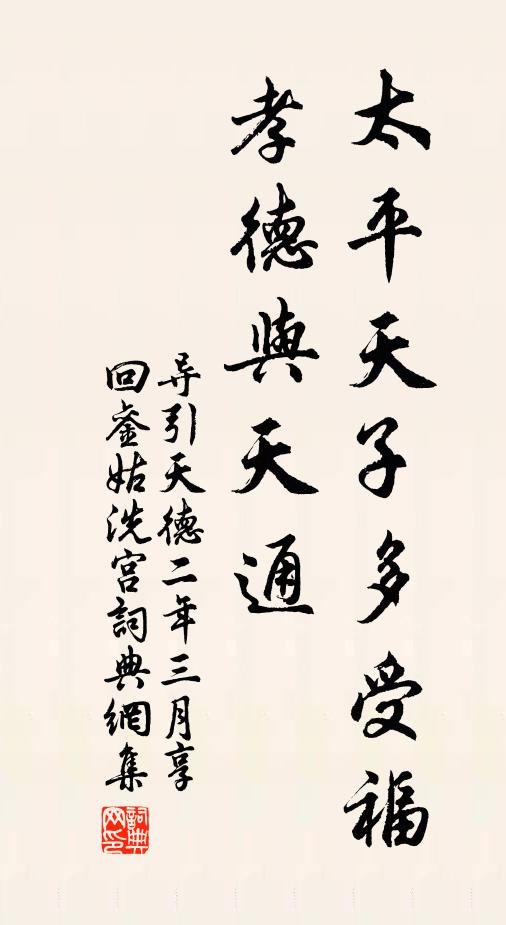 太平天子多受福
孝德與天通
导引天德二年三月享
回銮姑洗宫詞典網集
詞典网印